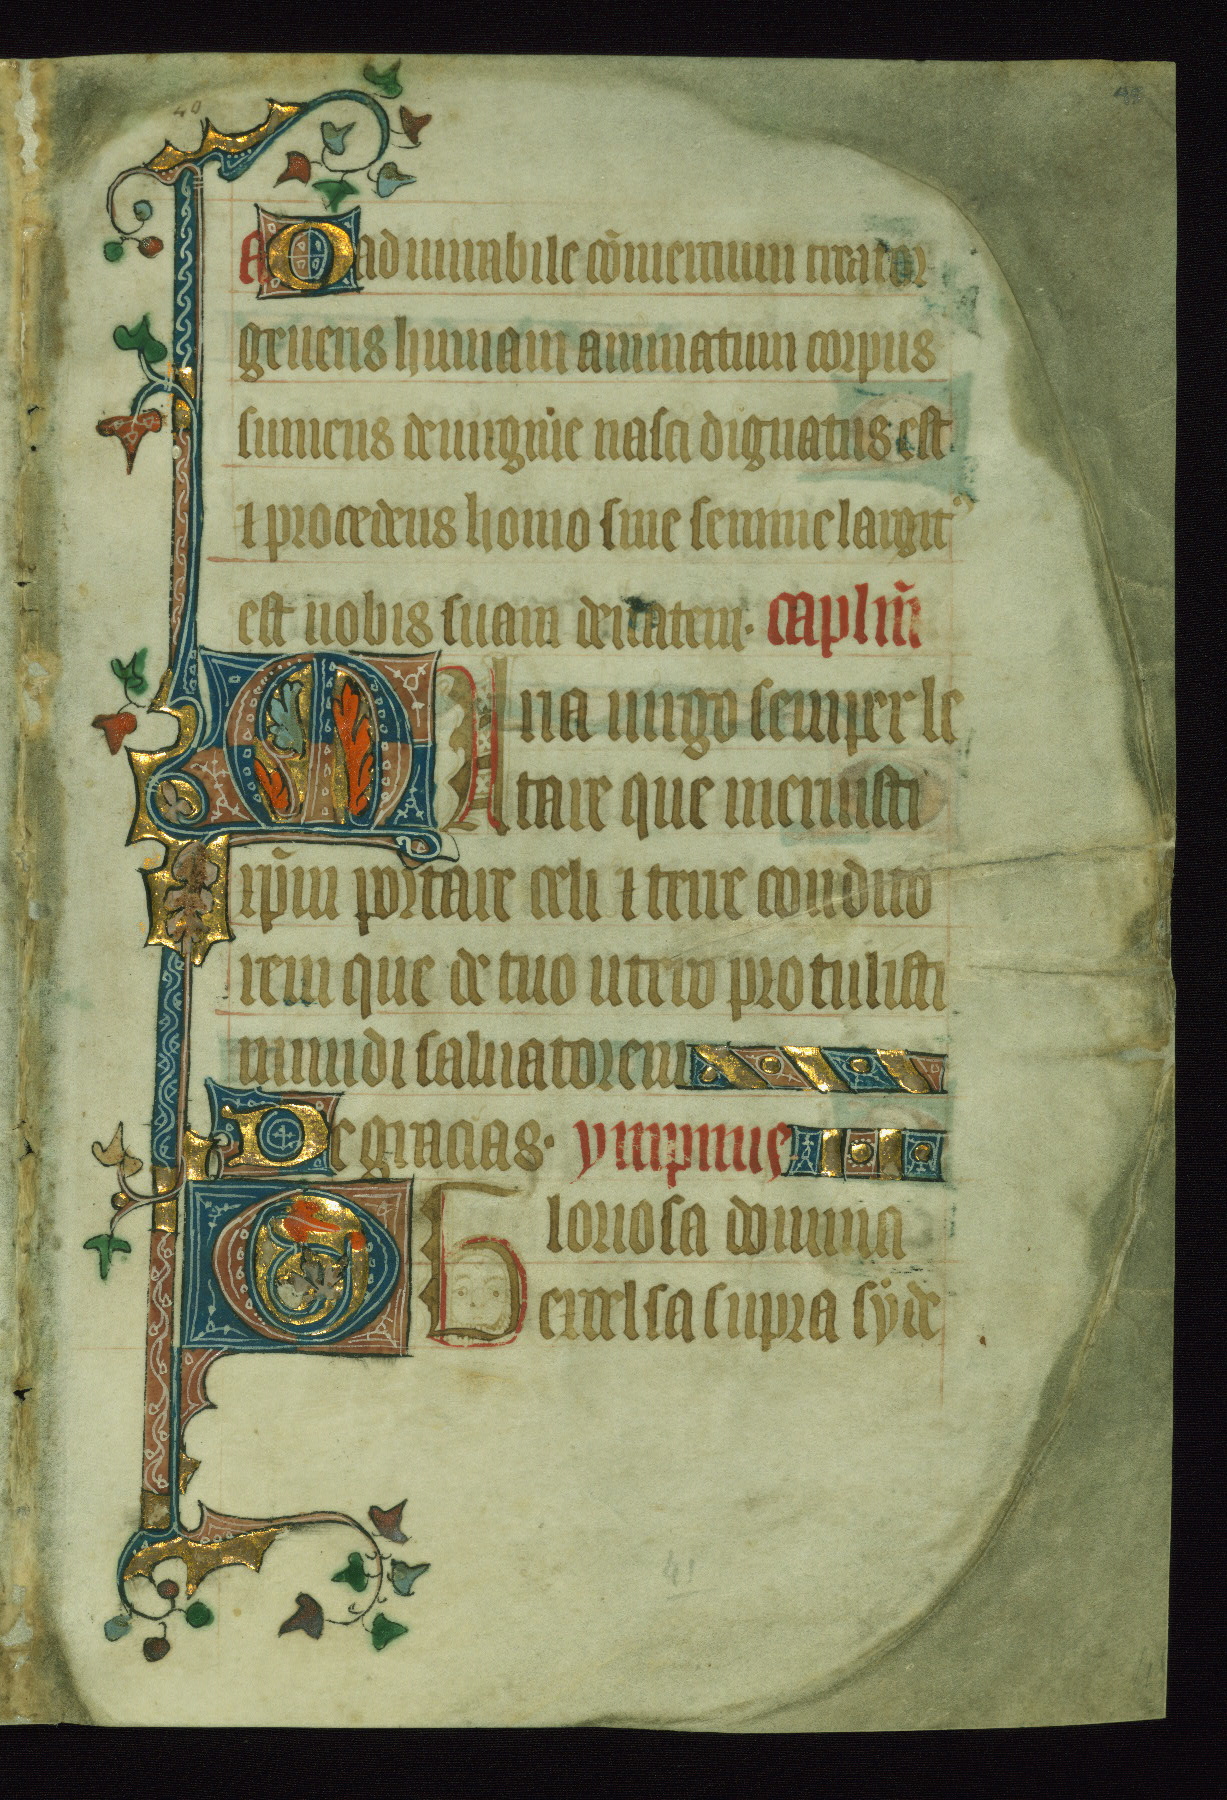 40
A O admirabile cõmertium creator
generis humani animatum corpus
sumens de uirgine nasci dignatus est
⁊ procedens homo sine semine largit᷒
est nobis suam deitatem. caplm̃
Maria uirgo semper le
tare que meruisti
xp̃m portare celi ⁊ terre condito
rem que de tuo utero protulisti
mundi saluatorem
De gracias. ympnus
O Gloriosa domina
excelsa supra syde
41